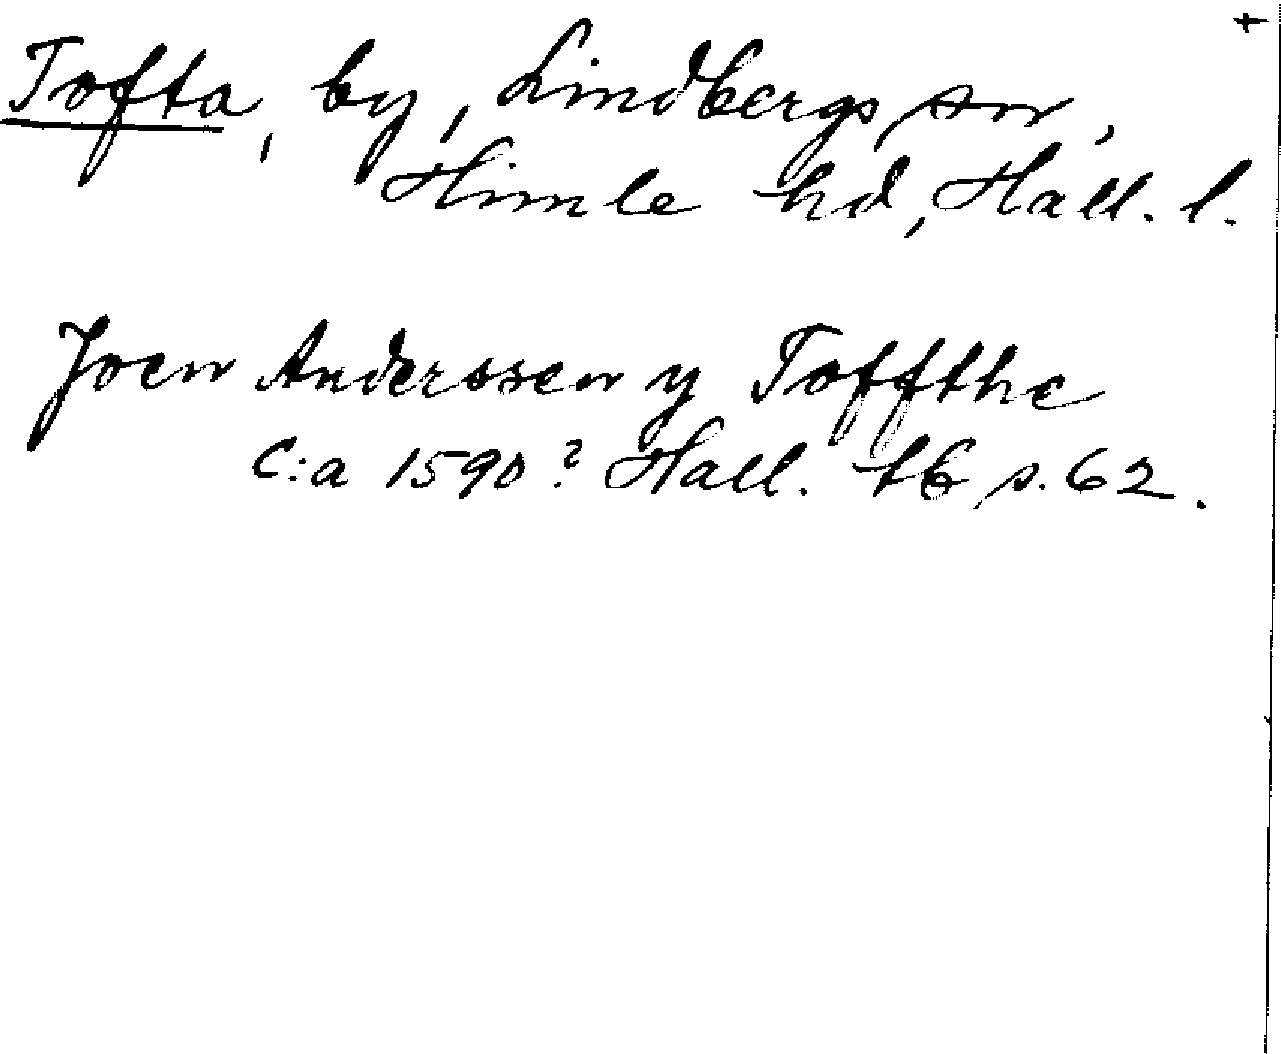 +
Tofta, by, Lindbergs sn,
Himle hd, Hall. l.
Joen Anderssen y Toffthe
C:a 1590? Hall. 16 s. 62.